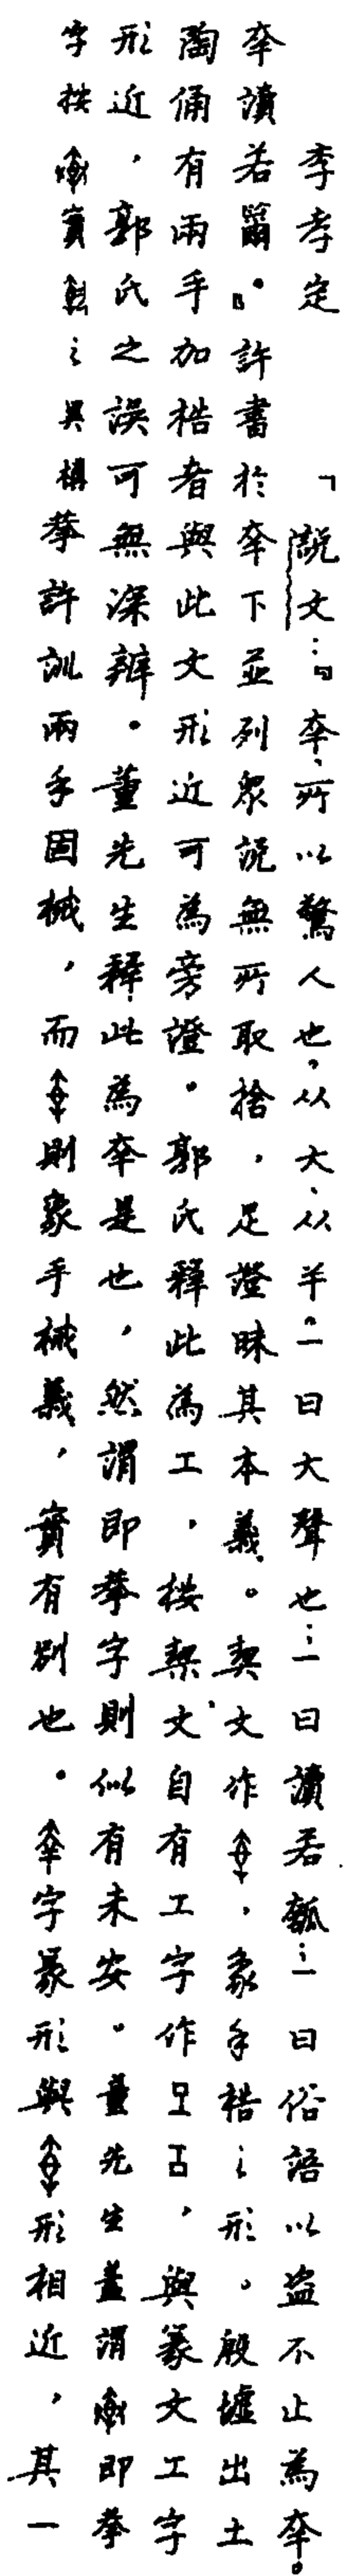 李孝定　「説文：『㚔、所以驚人也。从大、从羊。一曰大聲也…一曰讀若瓠…一曰俗語以盜不止為㚔。
㚔讀若籋。』許書於㚔下並列衆說無所取捨，足證昧其本義。契文作，象手梏之形。殷墟出土
陶俑有兩手加梏者與此文形近可為旁證。郭氏釋此為工，按契文自有工字作，與篆文工字
形近，郭氏之誤可無深辨。董先生釋此為㚔是也，然謂即拲字則似有未安。董先生蓋謂即拲
字按實之異構拲許訓兩手固械，而則象手械義，實有別也。㚔字篆形與形相近，其一